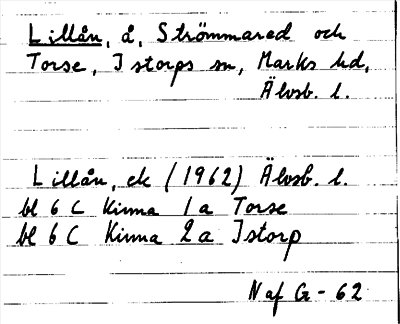 Lillån, å, Strömmared och
Torse, Istorps sn, Marks hd,
Älvsb. l.
Lillån, ek (1962) Älvsb. l.
bl 6 C Kinna 1a Torse
bl 6 C Kinna 2a Istorp
Naf G - 62